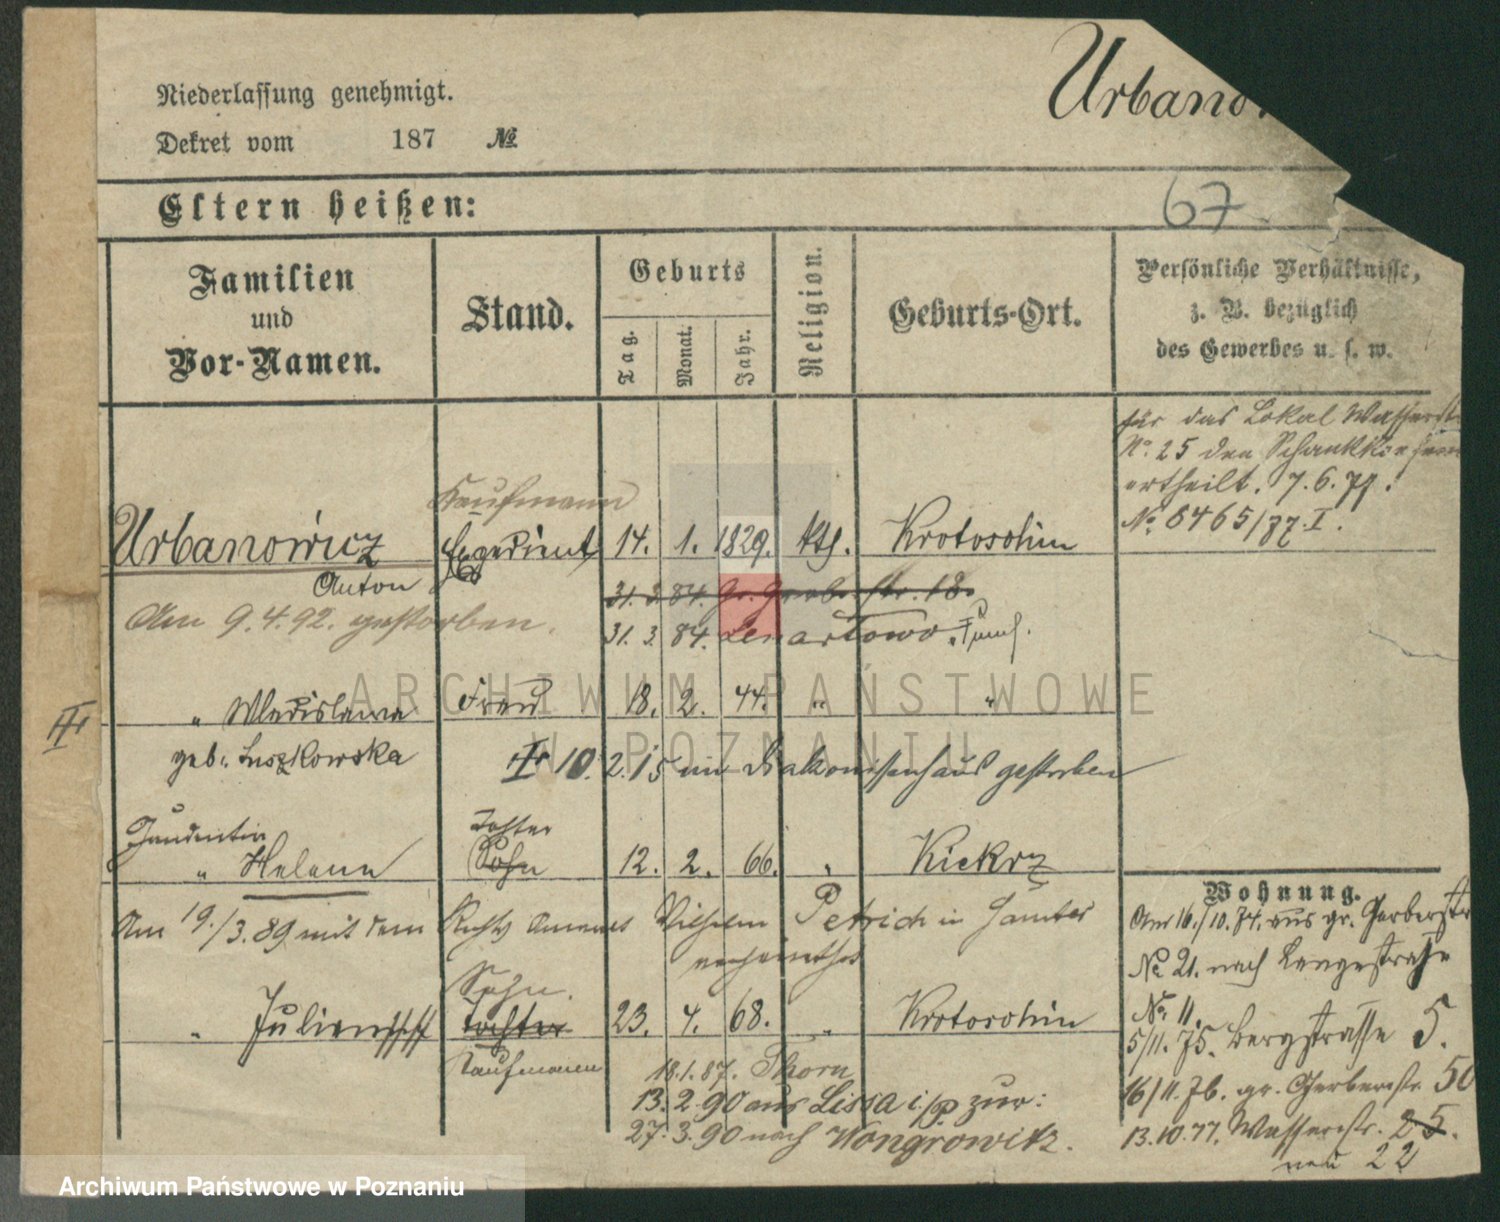 Urbano
Niederlassung genehmigt.
Dekret vom 187 №
67
Eltern heißen:
Familien
und
Vor-Namen.
Stand.
Geburts
Tag.
Monat.
Jahr.
Religion.
Geburts-Ort.
Persönliche Verhältnisse,
z. B. bezüglich
des Gewerbes u. s. w.
für das Lokal Wasserst
No. 25 den Schankkonsens
ertheilt. 7.6.77.
No. 8465/77.I.
Kaufmann
Urbanowicz Expedient 14. 1. 1829. kth. Krotoschin
Anton 31. 3. 84. Gr. Gerberstr. 18.
Am 9.4.92. gestorben. 31. 3. 84. Lenartowo
" Wladislawa Frau 18. 2. 44. " "
geb. Luszkowska 10. 2. 15 im Diakonissenhaus gestorben
Tochter
" Helene Sohn 12. 2. 66. " Kiekrz
Am 19./3.89 mit dem Wilhelm Petrich in Samter
verheirathet
Sohn.
" Julian Tochter 23. 4. 68. " Krotoschin
Kaufmann 18.1.87. Thorn
13.2.90 aus Lissa i/p zur:
27.3.90 nach Wongrowitz.
Wohnung.
Am 16./10.74. aus gr. Gerberstr
No 21. nach Langestraße
No. 11.
5/11.75. Bergstrasse 5.
16/11.76. gr. Gerberstr. 50
13.10.77. Wasserstr. 25.
neu 22
ARCHIWUM PAŃSTWOWE
W POZNANIU
Archiwum Państwowe w Poznaniu